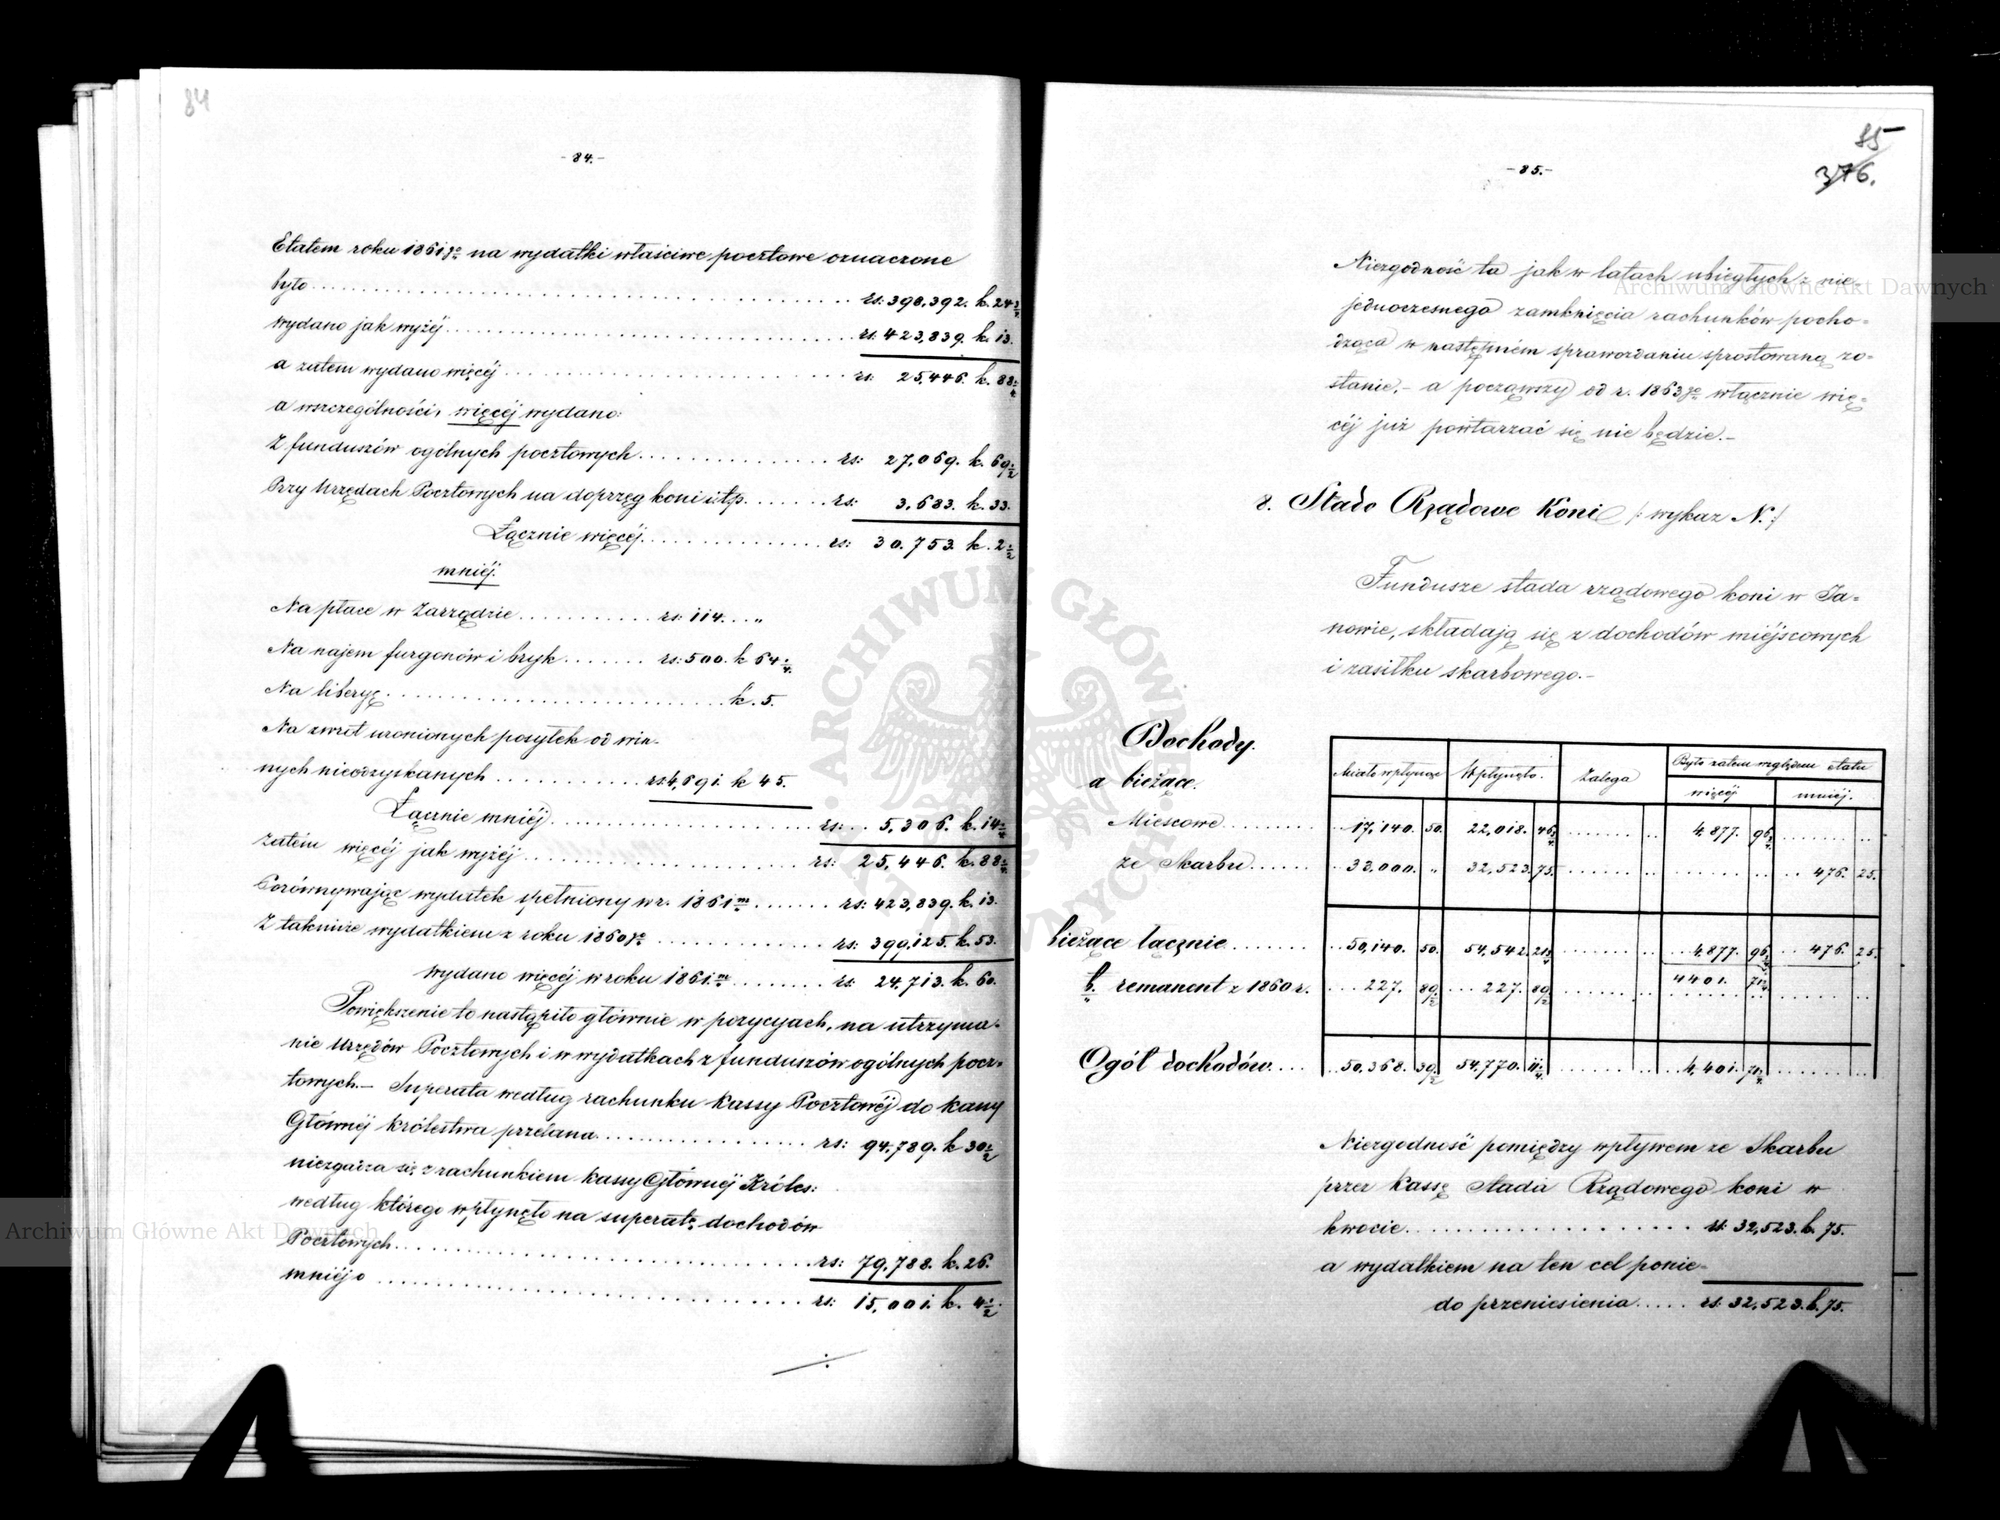 84
- 84. -
Etatem roku 1861go na wydatki właściwe pocztowe oznaczone
było rs: 398,392. k. 24 1/4
Wydano jak wyżéj rs: 423,839. k. 13.
a zatem wydano więcéj rs: 25,446. k. 88 3/4
a wszczególności, więcéj wydano:
Z funduszów ogólnych pocztowych rs: 27,069. k. 69 1/2
Przy Urzędach Pocztowych na doprzęg koni i t.p. rs: 3,683. k. 33.
Łącznie więcéj rs: 30,753. k. 2 1/2
mniéj.
Na płace w Zarządzie rs: 114. „
Na najem furgonów i bryk rs: 500. k 64 1/4
Na liberyę k. 5.
Na zwrot uronionych posyłek od win-
nych nieodzyskanych rs 4,691. k 45.
Łącznie mniéj rs: 5,306. k. 14 1/4
Zatém więcéj jak wyżéj rs: 25,446. k. 88 1/4
Porównywając wydatek spełniony w r. 1861m rs: 423,839. k. 13.
Z takimże wydatkiem z roku 1860go rs: 399,125. k. 53.
wydano więcéj w roku 1861.m rs: 24,713. k. 60.
Powiększenie to nastąpiło głównie w pozycyach, na utrzyma-
nie Urzędów Pocztowych i w wydatkach z funduszów ogólnych pocz-
towych.— Superata według rachunku Kassy Pocztowéj do Kassy
Głównéj Królestwa przelana rs: 94,789. k 30 1/2
niezgadza się z rachunkiem Kassy Głównéj Króles:
według którego wpłynęło na superatę dochodów
Pocztowych rs: 79,788. k. 26.
mniéj o rs: 15,001. k. 4 1/2
85
376.
- 85. -
Niezgodność ta jak w latach ubiegłych z nie-
jednoczesnego zamknięcia rachunków pocho-
dząca w następném sprawozdaniu sprostowaną zo-
stanie.- a począwszy od r. 1863go włącznie wię-
céj już powtarzać się nie będzie.-
8. Stado Rządowe Koni /: wykaz N. :/
Fundusze stada rządowego koni w Ja-
nowie, składają się z dochodów miéjscowych
i zasiłku skarbowego.-
Dochody.
Miało wpłynąć Wpłynęło. Zalega Było zatem względem etatu
więcéj mniéj.
a bieżące.
Miescowe 17,140. 50. 22,018. 46 1/4 4,877. 96 1/4
ze Skarbu 33,000. „ 32,523. 75. 476. 25.
bieżące łącznie 50,140. 50. 54,542. 21 1/4 4,877. 96 1/4 476. 25.
4401. 71 1/4
b. remanent z 1860 r. 227. 89 1/2 227. 89 1/2
Ogół dochodów 50,368. 39 1/2 54,770. 11 1/4 4,401. 71 1/4
Niezgodność pomiędzy wpływem ze Skarbu
przez Kassę Stada Rządowego koni w
kwocie rs: 32,523. k. 75.
a wydatkiem na ten cel ponie-
do przeniesienia rs. 32,523. k. 75.
Archiwum Główne Akt Dawnych
Archiwum Główne Akt Dawnych